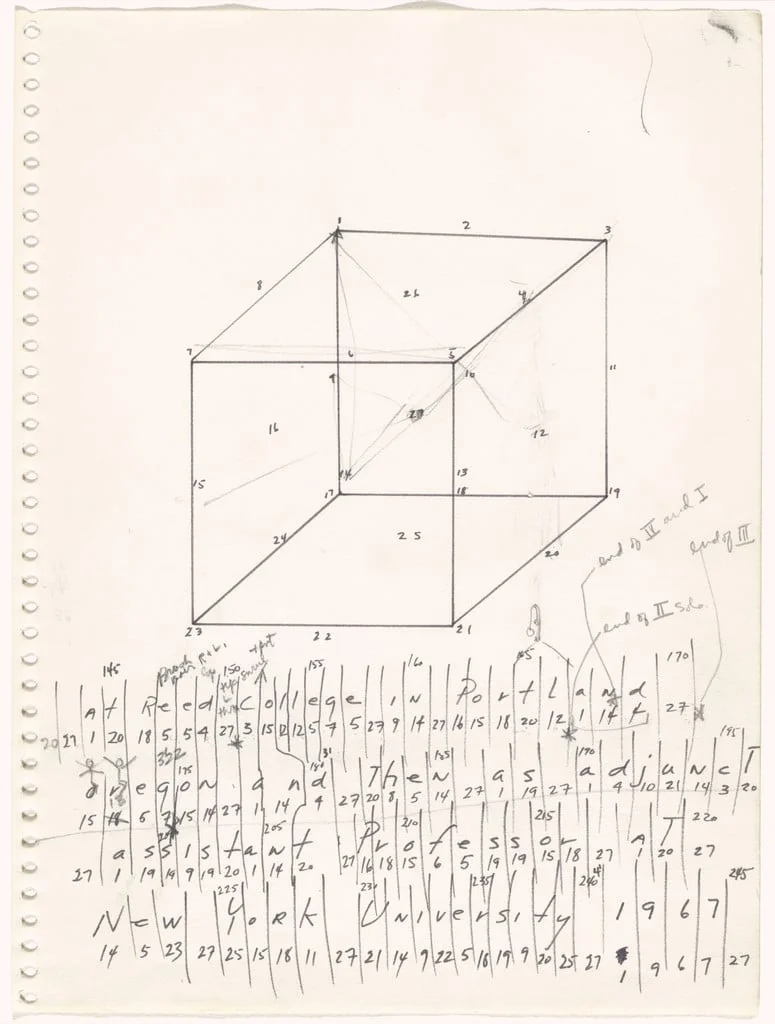 1 2 3
8 26 4
7 6 5
9 10 11
27
16 12
14 13
15 17 18 19
24 25 20
23 22 21
end of IV and I
end of III
end of II solo.
145 150 155 160 165 170
At Reed College in Portland
20 27 1 20 18 5 5 4 27 3 15 12 12 5 7 5 27 9 14 27 16 15 18 20 12 1 14 4 27
175 180 185 190 195
Oregon and Then as adjuncT
15 18 5 7 15 14 27 1 14 4 27 20 8 5 14 27 1 19 27 1 4 10 21 14 3 20
205 210 215 220
assistant Professor AT
27 1 19 19 9 19 20 1 14 20 27 16 18 15 6 5 19 19 15 18 27 1 20 27
225 235 240 245
New York University 1967
14 5 23 27 25 15 18 11 27 21 14 9 22 5 18 19 9 20 25 27 1 9 6 7 27